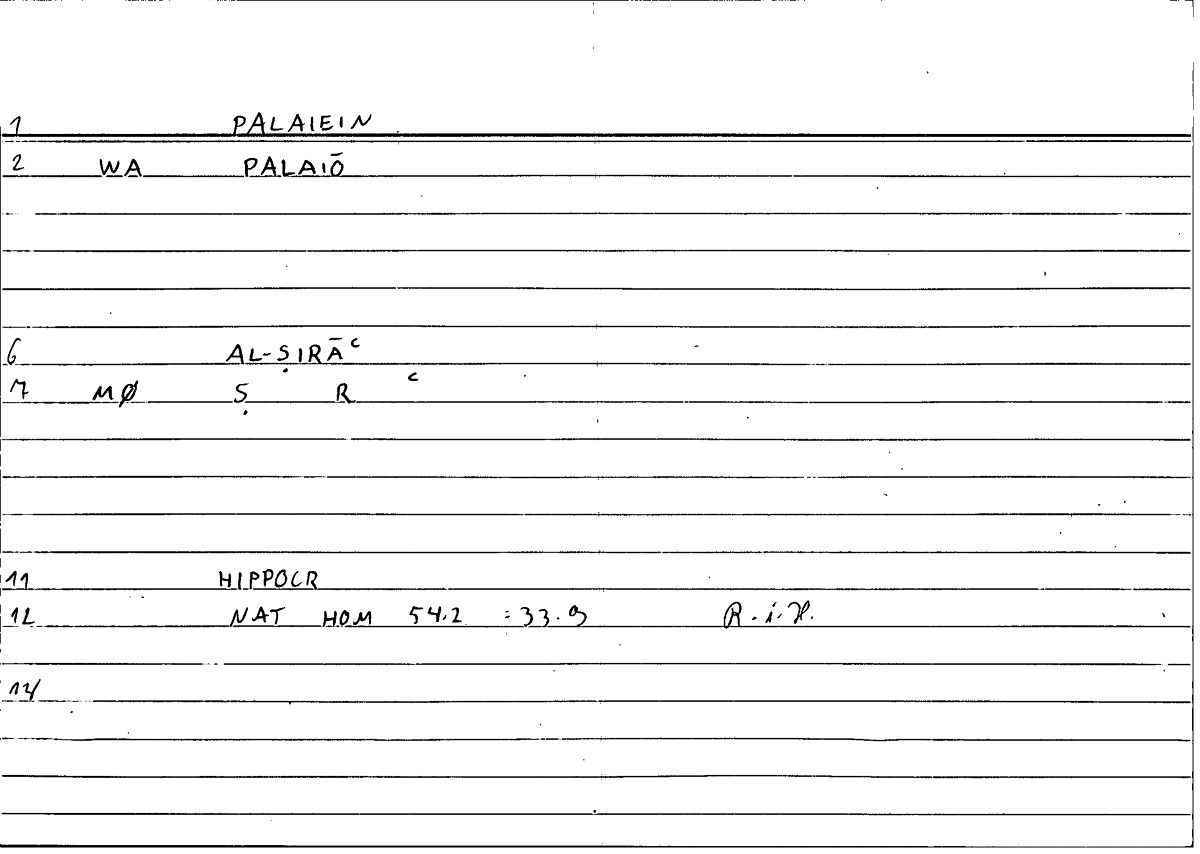 1 PALAIEIN
2 WA PALAIŌ
6 AL-ṢIRĀʿ
7 MØ Ṣ R ʿ
11 HIPPOCR
12 NAT HOM 54.2 = 33.9 R.i.H.
14